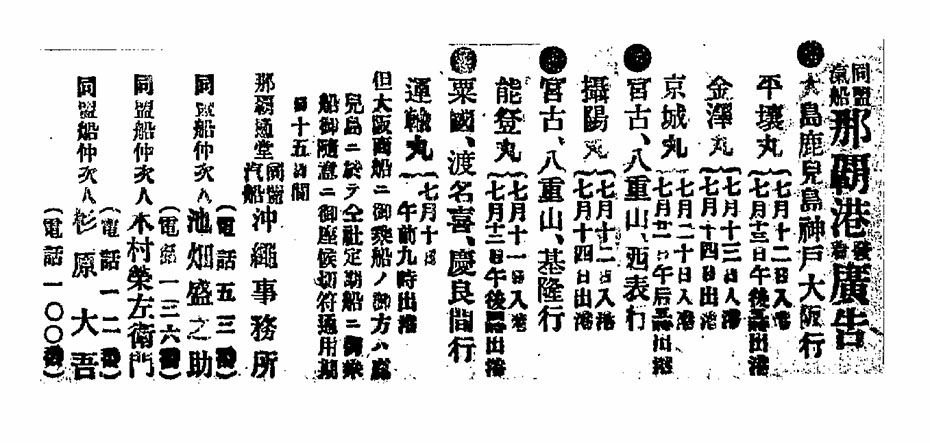 同盟汽船 那覇港發着廣告
大島鹿兒島神戸大阪行
平壤丸
七月十二日入港
七月十三日午後三時出港
金澤丸
七月十三日入港
七月十四日出港
京城丸
七月二十日入港
七月廿一日午后三時出港
宮古、八重山、西表行
攝陽丸
七月十二日入港
七月十四日出港
宮古、八重山、基隆行
能登丸
七月十一日入港
七月十二日午後四時出港
粟國、渡名喜、慶良間行
運輸丸
七月十日
午前九時出港
但大阪商船ニ御乘船ノ御方ハ鹿
兒島ニ於テ仝社定期船ニ御乘
船御隨意ニ御座候切符通用期
十五日間
那覇通堂
同盟汽船 沖繩事務所
(電話五三番)
同盟船仲次人 池畑盛之助
(電話一三六番)
同盟船仲次人 木村榮左衛門
(電話一二番)
同盟船仲次人 杉原大吾
(電話一〇〇番)